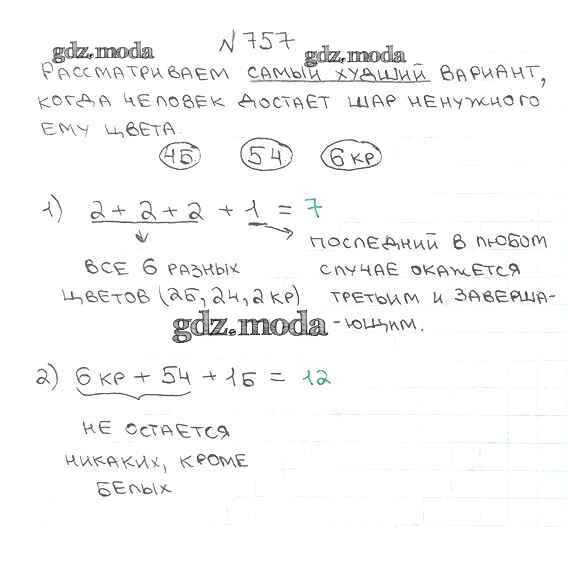 №757
gdz.moda gdz.moda
РАССМАТРИВАЕМ САМЫЙ ХУДШИЙ ВАРИАНТ,
КОГДА ЧЕЛОВЕК ДОСТАЕТ ШАР НЕНУЖНОГО
ЕМУ ЦВЕТА.
4Б 5Ч 6КР
1) 2 + 2 + 2 + 1 = 7
ПОСЛЕДНИЙ В ЛЮБОМ
ВСЕ 6 РАЗНЫХ СЛУЧАЕ ОКАЖЕТСЯ
ЦВЕТОВ (2Б, 2Ч, 2КР) ТРЕТЬИМ И ЗАВЕРША-
gdz.moda -ЮЩИМ.
2) 6КР + 5Ч + 1Б = 12
НЕ ОСТАЕТСЯ
НИКАКИХ, КРОМЕ
БЕЛЫХ